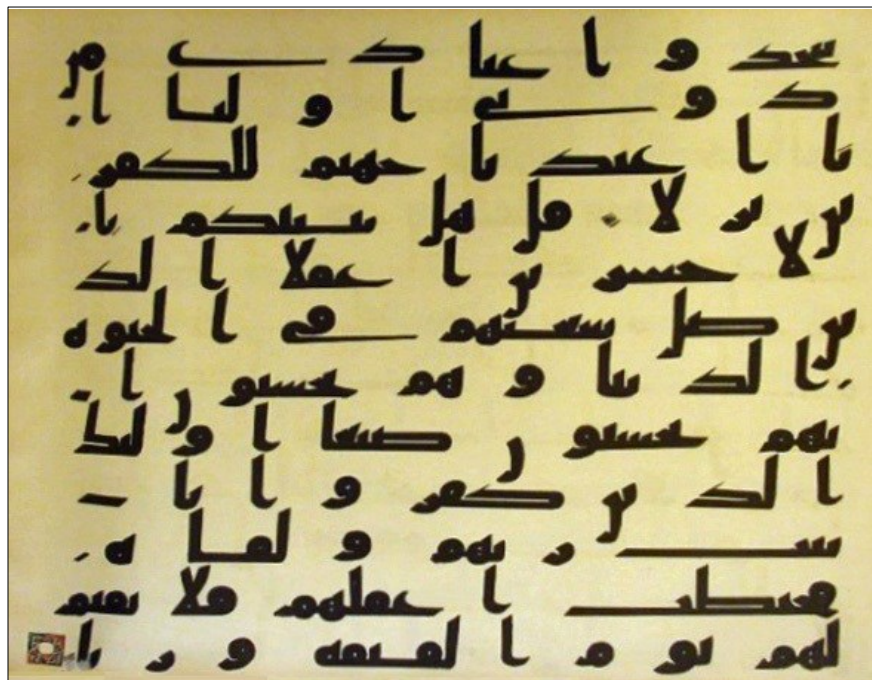 يتخذوا عبادي من
دوني اوليا ا
نا اعتدنا جهنم للكفر
ين نزلا قل هل ننبيكم با
لاخسرين اعملا الذ
ين ضل سعيهم في الحيوه
الدنيا وهم يحسبون ا
نهم يحسنون صنعا اوليك
الذين كفروا با
يت ربهم ولقايه
فحبطت اعملهم فلا نقيم
لهم يوم القيمه وزنا